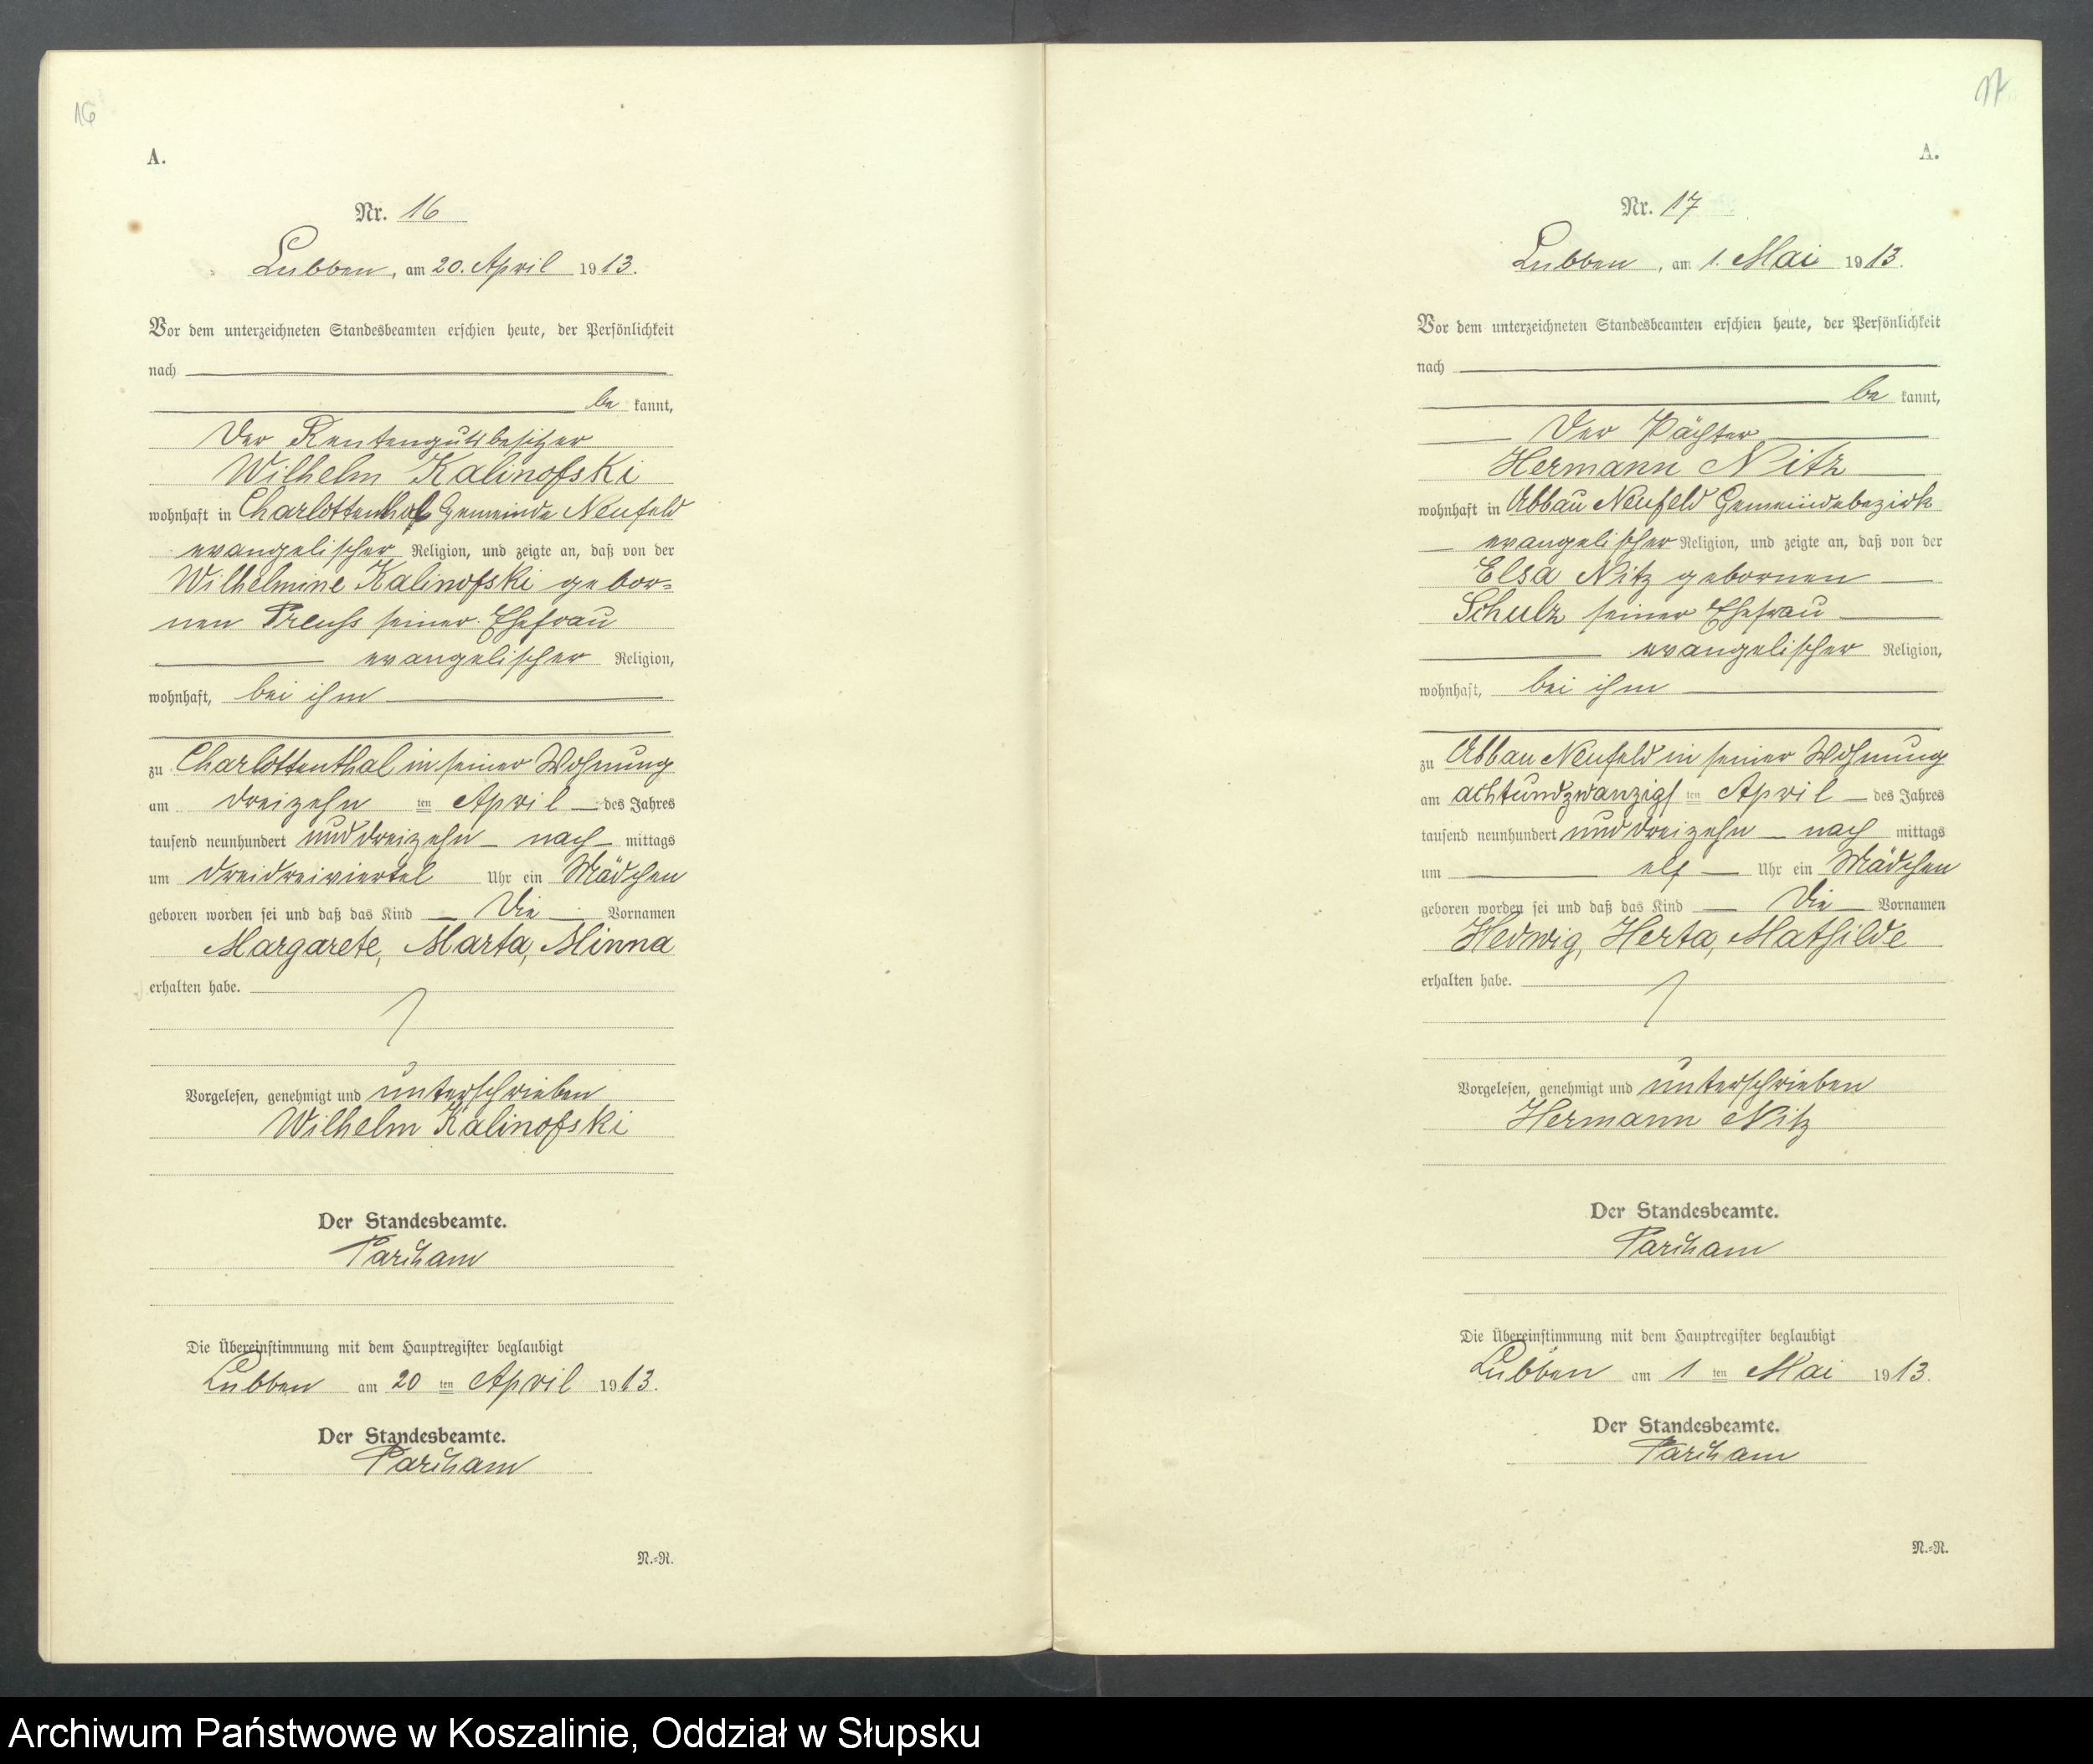 16
A.
Nr. 16
Lubben, am 20. April 1913.
Vor dem unterzeichneten Standesbeamten erschien heute, der Persönlichkeit
nach
be kannt,
Der Rentengutsbesitzer
Wilhelm Kalinofski
wohnhaft in Charlottenhof Gemeinde Neufeld
evangelischer Religion, und zeigte an, daß von der
Wilhelmine Kalinofski gebor=
nen Preuß seiner Ehefrau
evangelischer Religion,
wohnhaft, bei ihm
zu Charlottenthal in seiner Wohnung
am dreizehn ten April des Jahres
tausend neunhundert und dreizehn nach mittags
um dreidreiviertel Uhr ein Mädchen
geboren worden sei und daß das Kind die Vornamen
Margarete, Marta, Minna
erhalten habe.
Vorgelesen, genehmigt und unterschrieben
Wilhelm Kalinofski
Der Standesbeamte.
Die Übereinstimmung mit dem Hauptregister beglaubigt
Lubben am 20 ten April 1913.
Der Standesbeamte.
N.=R.
17
A.
Nr. 17
Lubben, am 1. Mai 1913.
Vor dem unterzeichneten Standesbeamten erschien heute, der Persönlichkeit
nach
be kannt,
Der Pächter
Hermann Nitz
wohnhaft in Abbau Neufeld Gemeindebezirk
evangelischer Religion, und zeigte an, daß von der
Elsa Nitz gebornen
Schulz seiner Ehefrau
evangelischer Religion,
wohnhaft, bei ihm
zu Abbau Neufeld in seiner Wohnung
am achtundzwanzigs ten April des Jahres
tausend neunhundert und dreizehn nach mittags
um elf Uhr ein Mädchen
geboren worden sei und daß das Kind die Vornamen
Hedwig, Herta, Mathilde
erhalten habe.
Vorgelesen, genehmigt und unterschrieben
Hermann Nitz
Der Standesbeamte.
Die Übereinstimmung mit dem Hauptregister beglaubigt
Lubben am 1 ten Mai 1913.
Der Standesbeamte.
N.=R.
Archiwum Państwowe w Koszalinie, Oddział w Słupsku